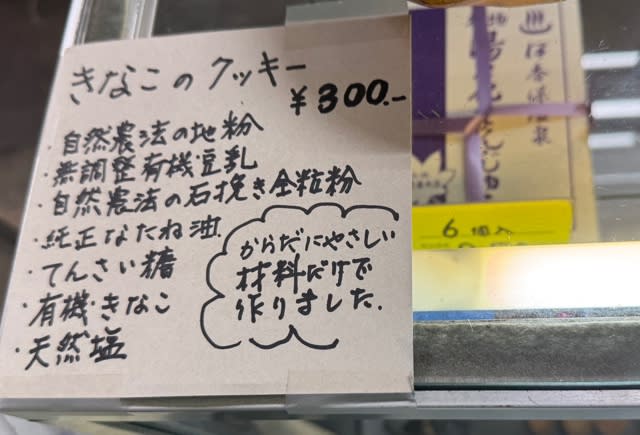 きなこのクッキー
¥300.-
・自然農法の地粉
・無調整有機豆乳
・自然農法の石挽き全粒粉
・純正なたね油
・てんさい糖
・有機きなこ
・天然塩
からだにやさしい
材料だけで
作りました.
伊香保温泉
6個入